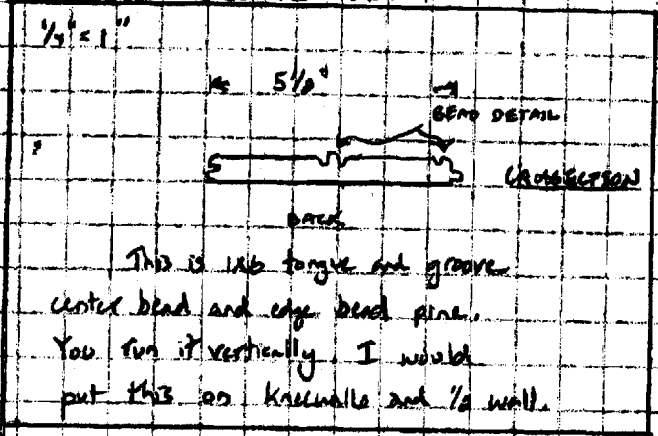 1/4" = 1"
5 1/8"
BEAD DETAIL
CROSSECTION
BACK
This is 1x6 tongue and groove
center bead and edge bead pine.
You run it vertically. I would
put this on kneewalls and 1/2 wall.